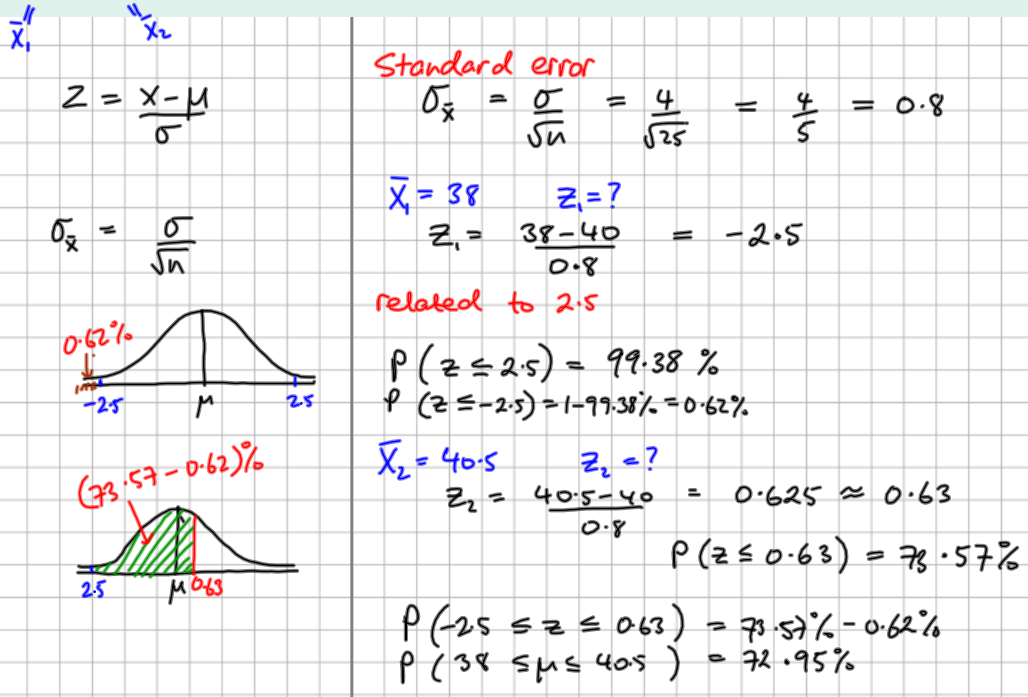 X̄₁ X̄₂
Z = (x - μ) / σ
σx̄ = σ / √n
0.62%
-2.5 μ 2.5
(73.57 - 0.62)%
2.5 μ 0.63
Standard error
σx̄ = σ / √n = 4 / √25 = 4 / 5 = 0.8
X̄₁ = 38 Z₁ = ?
Z₁ = (38 - 40) / 0.8 = -2.5
related to 2.5
P (z ≤ 2.5) = 99.38 %
P (z ≤ -2.5) = 1-99.38% = 0.62%
X̄₂ = 40.5 Z₂ = ?
Z₂ = (40.5 - 40) / 0.8 = 0.625 ≈ 0.63
P (z ≤ 0.63) = 73.57%
P (-2.5 ≤ z ≤ 0.63) = 73.57% - 0.62%
P (38 ≤ μ ≤ 40.5) = 72.95%